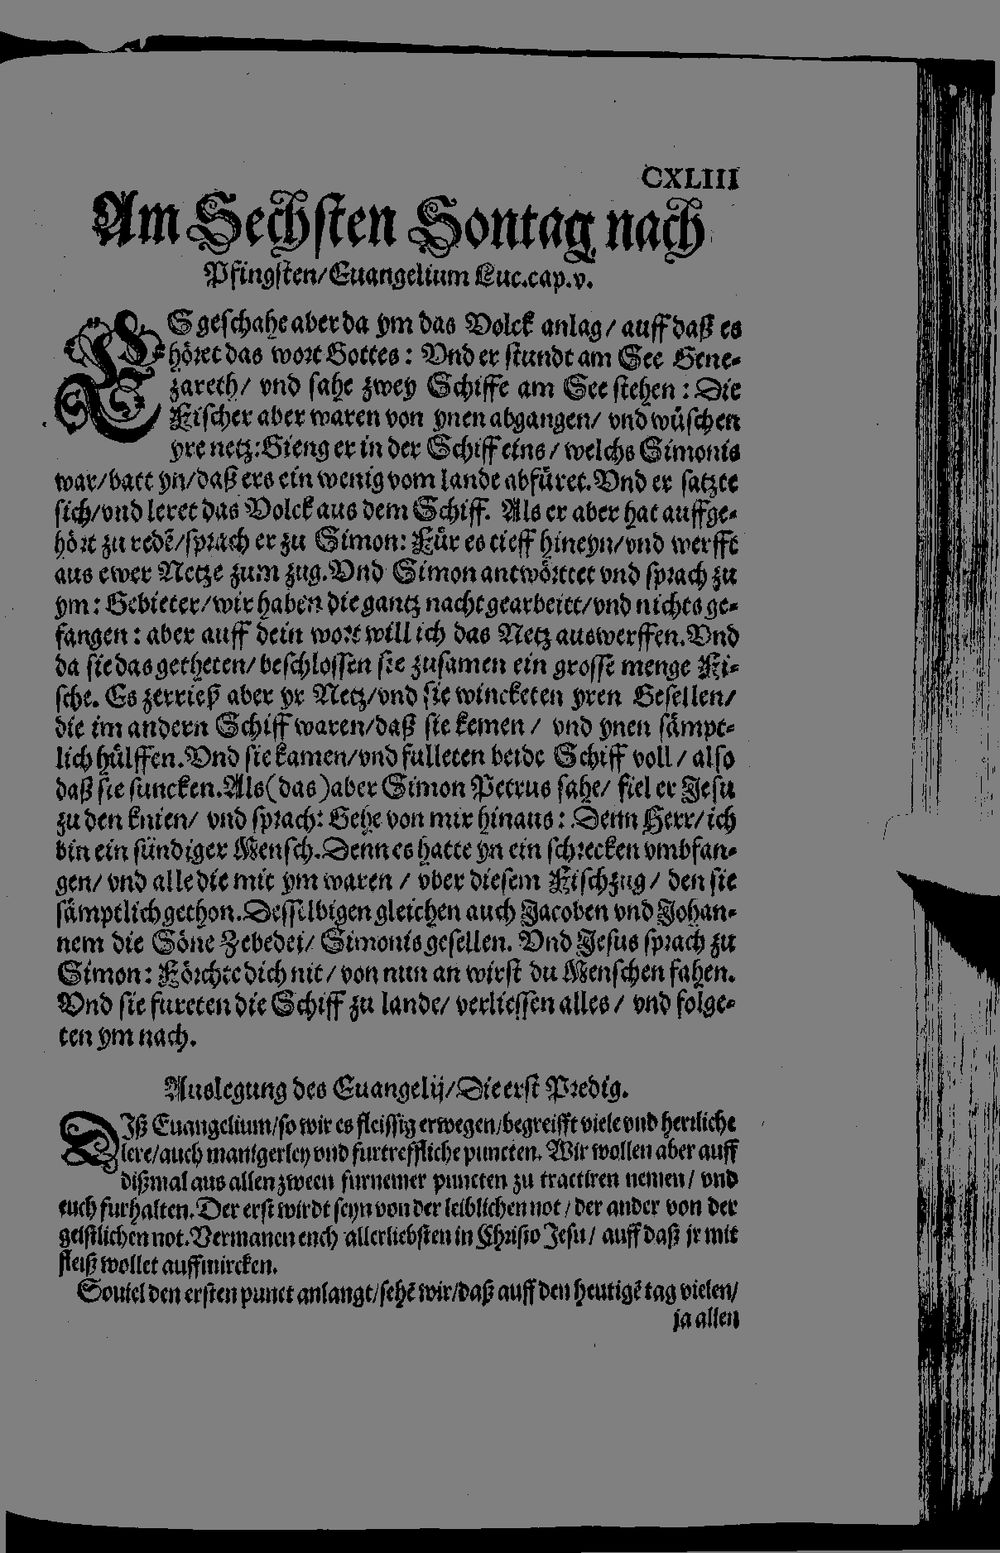 CXLIII
Am Sechsten Sontag nach
Pfingsten/Euangelium Luc.cap.v.
ES geschahe aber da ym das Volck anlag/ auff daß es
höret das wort Gottes: Vnd er stundt am See Gene-
zareth/ vnd sahe zwey Schiffe am See stehen: Die
Fischer aber waren von ynen abgangen/ vnd wüschen
yre netz: Gieng er in der Schiff eins/ welchs Simonis
war/batt yn/daß ers ein wenig vom lande abfüret. Vnd er satzte
sich/vnd leret das Volck aus dem Schiff. Als er aber hat auffge-
hört zu redē/sprach er zu Simon: Für es tieff hineyn/vnd werfft
aus ewer Netze zum zug. Vnd Simon antwörttet vnd sprach zu
ym: Gebieter/wir haben die gantz nacht gearbeitt/vnd nichts ge-
fangen: aber auff dein wort will ich das Netz auswerffen. Vnd
da sie das getheten/ beschlossen sie zusamen ein grosse menge Fi-
sche. Es zerrieß aber yr Netz/vnd sie wincketen yren Gesellen/
die im andern Schiff waren/daß sie kemen/ vnd ynen sämpt-
lich hülffen. Vnd sie kamen/vnd fulleten beide Schiff voll/ also
daß sie suncken. Als (das) aber Simon Petrus sahe/ fiel er Jesu
zu den knien/ vnd sprach: Gehe von mir hinaus: Denn Herr/ich
bin ein sündiger Mensch. Denn es hatte yn ein schrecken vmbfan-
gen/ vnd alle die mit ym waren/ vber diesem Fischzug/ den sie
sämptlich gethon. Desselbigen gleichen auch Jacoben vnd Johan-
nem die Söne Zebedei/ Simonis gesellen. Vnd Jesus sprach zu
Simon: Förchte dich nit/ von nun an wirst du Menschen fahen.
Vnd sie fureten die Schiff zu lande/ verliessen alles/ vnd folge-
ten ym nach.
Auslegung des Euangelij/Die erst Predig.
DIß Euangelium/so wir es fleissig erwegen/begreifft viele vnd herrliche
lere/auch manigerley vnd furtreffliche puncten. Wir wollen aber auff
dißmal aus allen zween furnemer puncten zu tractiren nemen/ vnd
euch furhalten. Der erst wirdt seyn von der leiblichen not/der ander von der
geistlichen not. Vermanen euch allerliebsten in Christo Jesu/ auff daß jr mit
fleiß wollet auffmircken.
Souiel den ersten punct anlangt/sehē wir/daß auff den heutigē tag vielen/
ja allen